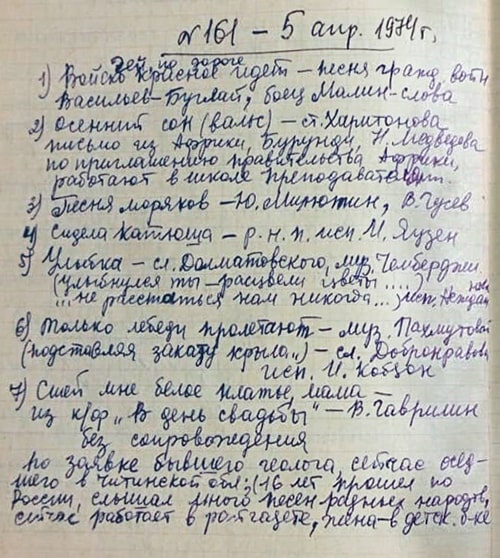 №161 – 5 апр. 1974 г.
Гей по дороге
1) Войско красное идет – песня гражд. войн
Васильев-Буглай, боец Малин-слова
2) Осенний сон (вальс) – ст. Харитонова
письмо из Африки, Бурунди, Н. Медведева
по приглашению правительства Африки,
работают в школе преподават.
3) Песня моряков – Ю. Милютин, В. Гусев
4) Сидела Катюша – р. н. п. исп. И. Яузен
5) Улыбка – сл. Долматовского, муз. Чемберджи
(улыбнулся ты – расцвели цветы....) нова
"... не расстаться нам никогда...) исп. Неждан
6) Только лебеди пролетают – муз. Пахмутовой
(подставляя закату крыла..) – сл. Добронравова
исп. И. Кобзон
7) Сшей мне белое платье, мама –
из к/ф "В день свадьбы" – В. Гаврилин
без сопровождения
По заявке бывшего геолога, сейчас осед-
шего в Читинской обл: (16 лет прошел по
России, слышал много песен разных народов,
сейчас работает в рай.газете, жена-в детск. б-ке